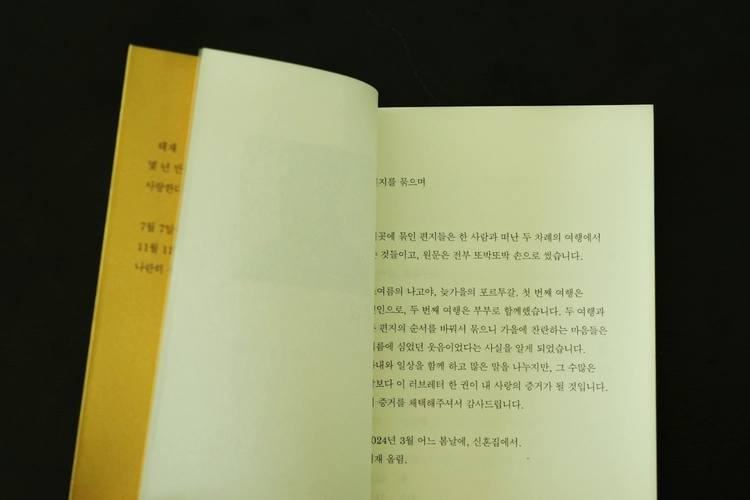 태재
몇 년 만
사랑한다
7월 7일
11월 11
나란히
지를 묶으며
곳에 묶인 편지들은 한 사람과 떠난 두 차례의 여행에서
것들이고, 원문은 전부 또박또박 손으로 썼습니다.
여름의 나고야, 늦가을의 포르투갈. 첫 번째 여행은
인으로, 두 번째 여행은 부부로 함께했습니다. 두 여행과
편지의 순서를 바꿔서 묶으니 가을에 찬란하는 마음들은
름에 심었던 웃음이었다는 사실을 알게 되었습니다.
내와 일상을 함께 하고 많은 말을 나누지만, 그 수많은
보다 이 러브레터 한 권이 내 사랑의 증거가 될 것입니다.
증거를 채택해주셔서 감사드립니다.
024년 3월 어느 봄날에, 신혼집에서.
재 올림.